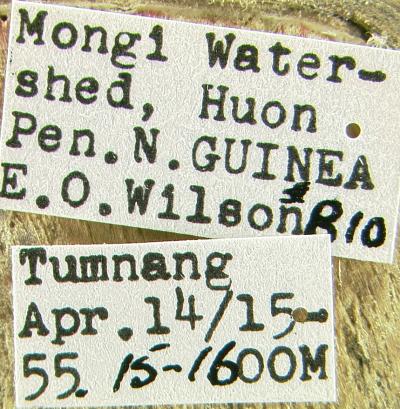 Mongi Water-
shed, Huon
Pen. N. GUINEA
E.O.Wilson 810
Tumnang
Apr. 14/15-
55. 15-1600M